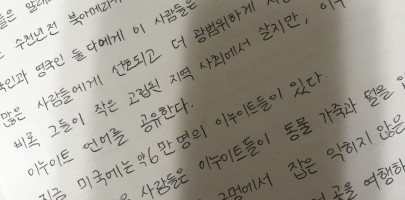 수천년 전 북아메리카
영국인 둘 다에게 이 사람들은
많은 사람들에게 선호되고 더 광범위하게
비록 그들이 작은 고립된 지역 사회에서 살지만, 이누
이누이트 언어를 공유한다.
지금 미국에는 약 6만 명의 이누이트들이 있다.
사람들은 이누이트들이 동물 가죽과 털을
에서 잡은 익히지 않은
곳을 여행하